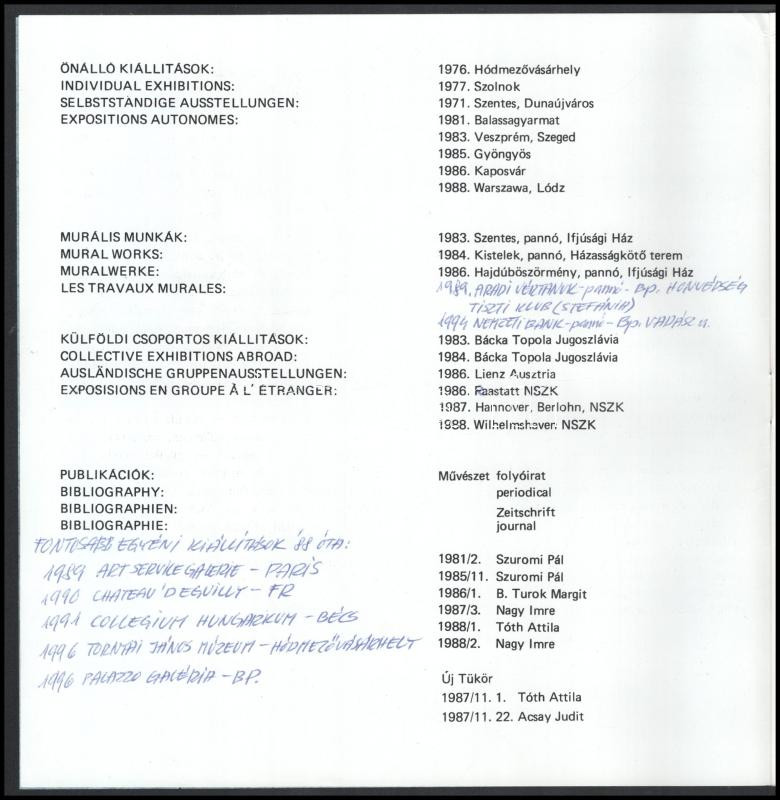 ÖNÁLLÓ KIÁLLITÁSOK:
INDIVIDUAL EXHIBITIONS:
SELBSTSTÄNDIGE AUSSTELLUNGEN:
EXPOSITIONS AUTONOMES:
1976. Hódmezővásárhely
1977. Szolnok
1971. Szentes, Dunaújváros
1981. Balassagyarmat
1983. Veszprém, Szeged
1985. Gyöngyös
1986. Kaposvár
1988. Warszawa, Lódz
MURÁLIS MUNKÁK:
MURAL WORKS:
MURALWERKE:
LES TRAVAUX MURALES:
1983. Szentes, pannó, Ifjúsági Ház
1984. Kistelek, pannó, Házasságkötő terem
1986. Hajdúböszörmény, pannó, Ifjúsági Ház
1989. ARADI VÉRTANUK-pannó - Bp. HONVÉDSÉG
TISZTI KLUB (STEFÁNIA)
1994 NEMZETI BANK-pannó - Bp. VADÁSZ u.
KÜLFÖLDI CSOPORTOS KIÁLLITÁSOK:
COLLECTIVE EXHIBITIONS ABROAD:
AUSLÄNDISCHE GRUPPENAUSSTELLUNGEN:
EXPOSISIONS EN GROUPE À L' ÉTRANGER:
1983. Bácka Topola Jugoszlávia
1984. Bácka Topola Jugoszlávia
1986. Lienz Ausztria
1986. Raastatt NSZK
1987. Hannover, Berlohn, NSZK
1988. Wilhelmshaven, NSZK
PUBLIKÁCIÓK:
BIBLIOGRAPHY:
BIBLIOGRAPHIEN:
BIBLIOGRAPHIE:
Művészet folyóirat
periodical
Zeitschrift
journal
FONTOSABB EGYÉNI KIÁLLÍTÁSOK '88 ÓTA:
1989 ART SERVICE GALERIE - PARIS
1990 CHATEAU D'EGUILLY - FR
1991 COLLEGIUM HUNGARICUM - BÉCS
1996 TORNYAI JÁNOS MÚZEUM - HÓDMEZŐVÁSÁRHELY
1996 PALAZZO GALÉRIA - BP.
1981/2. Szuromi Pál
1985/11. Szuromi Pál
1986/1. B. Turok Margit
1987/3. Nagy Imre
1988/1. Tóth Attila
1988/2. Nagy Imre
Új Tükör
1987/11. 1. Tóth Attila
1987/11. 22. Acsay Judit